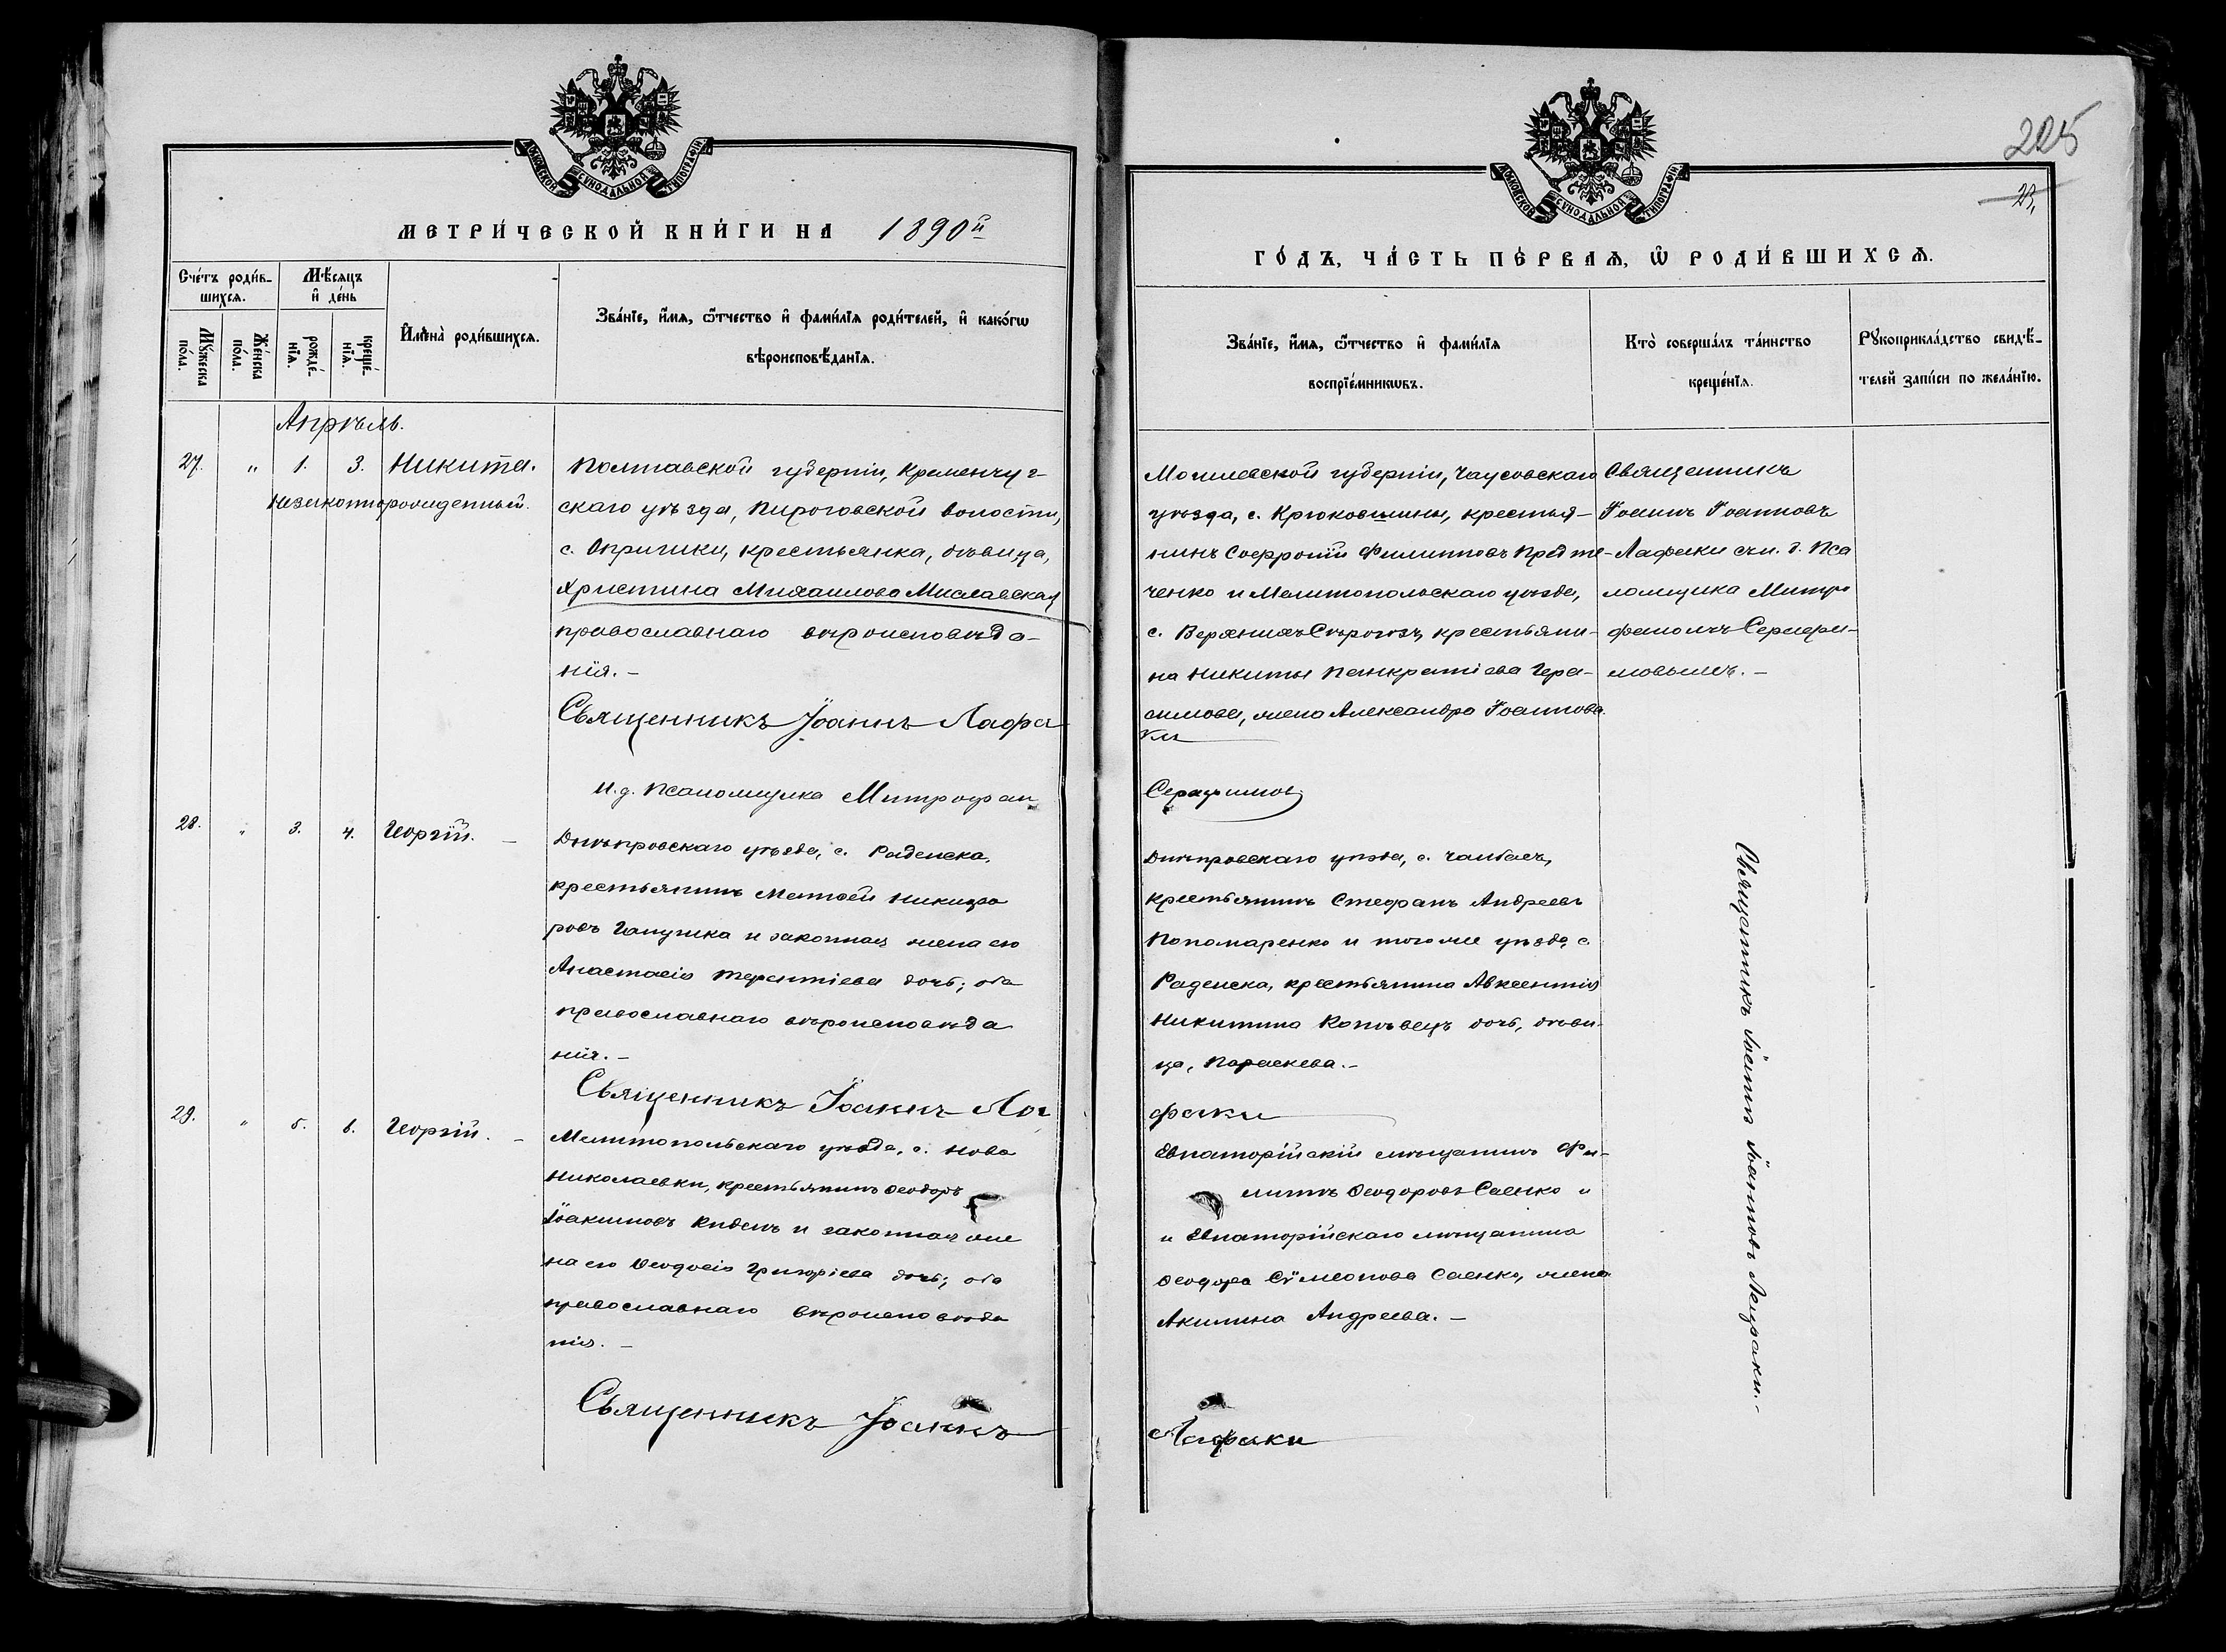 МОСКОВСКОЙ СѴНОДАЛЬНОЙ ТИПОГРАФІИ
МЕТРИ́ЧЕСКОЙ КНИ́ГИ НА 1890й
Сче́тъ роди́в-
шихся.
Мѣ́сяцъ
и҆ де́нь
Мꙋ́жеска
по́ла.
Же́нска
по́ла.
рожде́-
нїѧ.
креще́-
нїѧ.
И҆мена̀ роди́вшихся.
Зва́нїе, и҆́мѧ, ѻ҆́тчество и҆ фами́лїѧ роди́телей, и҆ како́гѡ
вѣроисповѣ́данїѧ.
Апрѣль.
27. " 1. 3. Никита.
Незаконнорожденный.
Полтавской губерніи, Кременчуг-
скаго уѣзда, Пироговской волости,
с. Опришки, крестьянка, дѣвица,
Христина Михаилова Миславская
православнаго вѣроисповѣда-
нія. –
Священникъ Іоаннъ Лафа
И. д. Псаломщика Митрофан
28. " 3. 4. Георгій. –
Днѣпровскаго уѣзда, с. Раденска,
крестьянинъ Матѳей Никифо
ровъ Гапушка и законная жена его
Анастасія Терентіева дочь; оба
православнаго вѣроисповѣда
нія. –
Священникъ Іоаннъ Ла
29. " 5. 6. Георгій. –
Мелитопольскаго уѣзда, с. Ново
Николаевки, крестьянинъ Ѳеодоръ
Іоакимовъ Кидень и законная же
на его Ѳеодосія Григоріева дочь; оба
православнаго вѣроисповѣда
нія. –
Священникъ Іоаннъ
225
23,
МОСКОВСКОЙ СѴНОДАЛЬНОЙ ТИПОГРАФІИ
ГО́ДЪ, ЧА́СТЬ ПЕ́РВАѦ, Ѡ҆ РОДИ́ВШИХСѦ.
Зва́нїе, и҆́мѧ, ѻ҆́тчество и҆ фами́лїѧ
воспрїе́мникѡвъ.
Кто̀ соверша́лъ та́инство
креще́нїѧ.
Рꙋкоприкла́дство свидѣ́-
телей за́писи по жела́нїю.
Могилевской губерніи, Чаусовскаго
уѣзда, с. Крюковщины, крестья-
нинъ Софроній Филипповъ Предте-
ченко и Мелитопольскаго уѣзда,
с. Верхнихъ Сѣрогозъ, крестьяни-
на Никиты Панкратіева Гера-
симова, жена Александра Іоаннова.
ки
Серафимов
Священникъ
Іоаннъ Іоанновъ
Лафаки съ и. д. Пса
ломщика Митро
фаномъ Серафи-
мовымъ. –
Днѣпровскаго уѣзда, с. Чалбасъ,
крестьянинъ Стефанъ Андреевъ
Пономаренко и того же уѣзда, с.
Раденска, крестьянина Авксентія
Никитина Коповецъ дочь, дѣви-
ца, Параскева. –
факи
Евпаторійскій мѣщанинъ Фи-
липпъ Ѳеодоровъ Саенко и
и Евпаторійскаго мѣщанина
Ѳеодора Сѵмеонова Саенко, жена
Акилина Андреева. –
Лафаки
Священникъ Іоаннъ Іоанновъ Лафаки. –